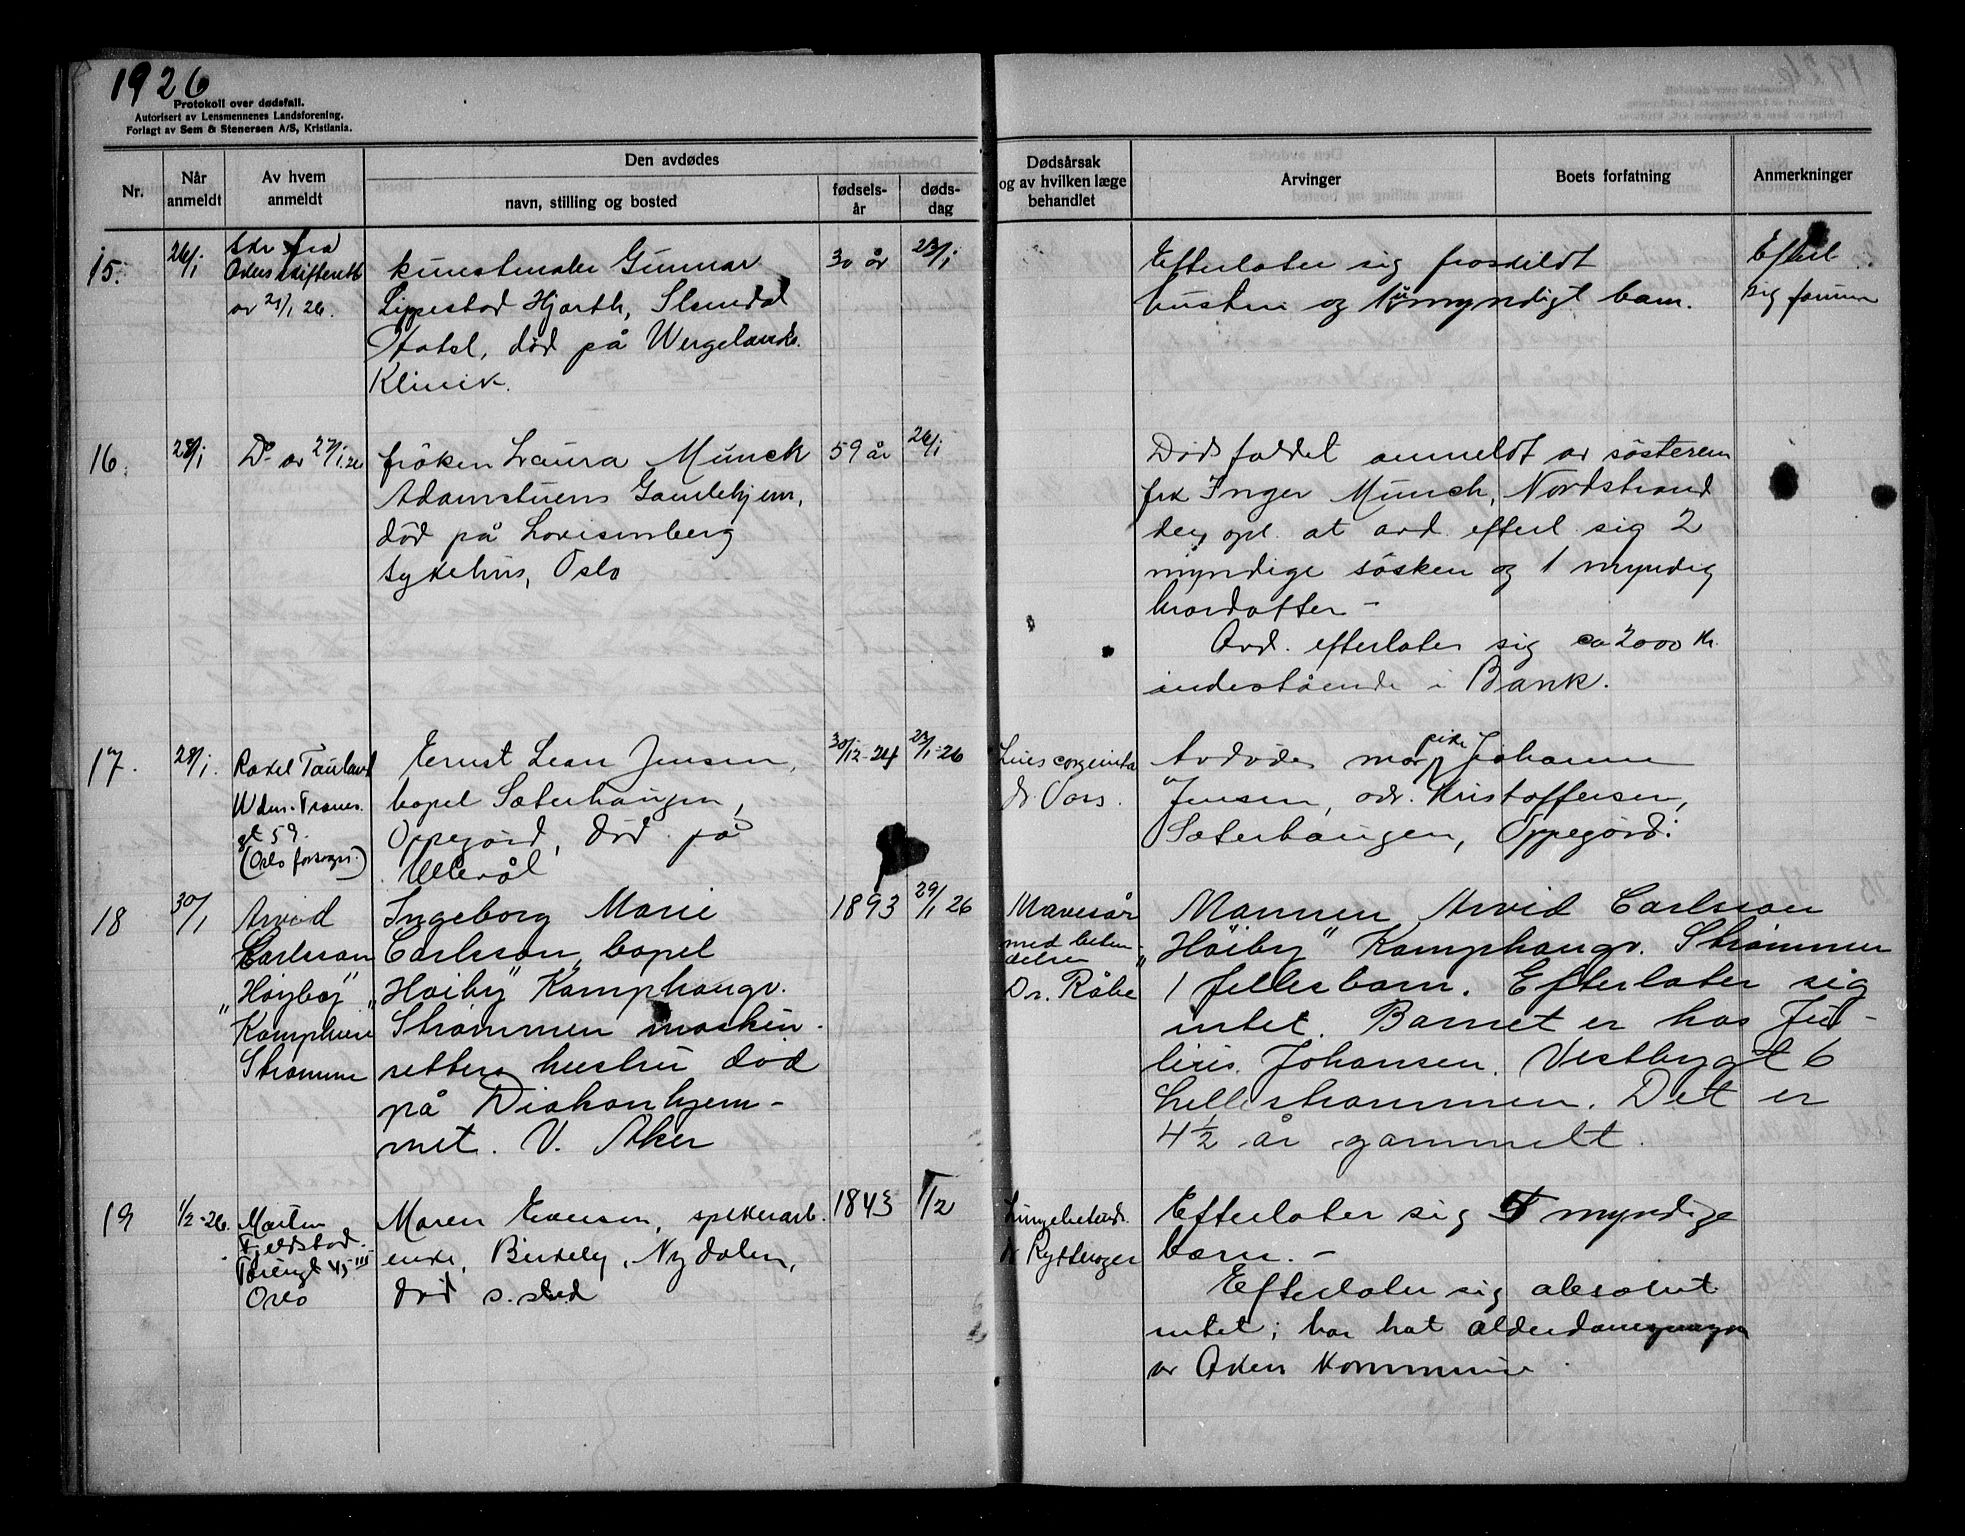 1926
Protokoll over dødsfall.
Autorisert av Lensmennenes Landsforening.
Forlagt av Sem & Stenersen A/S, Kristiania.
Nr.
Når anmeldt
Av hvem anmeldt
Den avdødes
navn, stilling og bosted
fødsels-år
døds-dag
Dødsårsak
og av hvilken læge
behandlet
Arvinger
Boets forfatning
Anmerkninger
15.
26/1
Skr fra
Akers skifterett
av 25/1 26.
kunstmaler Gunnar
Lippestad Hjorth, Slemdal
Hotel, død på Wergelands.
Klinik.
30 år
23/1
Efterlater sig fraskildt
hustru og 1 umyndigt barn.
Efterl
sig formue
16.
28/1
Do av 27/1.26
frøken Laura Munch
Adamstuens Gamlehjem,
død på Lovisenberg
sykehus, Oslo
59 år
26/1
Dødsfaldet anmeldt av søsteren
frk Inger Munch, Nordstrand
der opl. at avd. efterl. sig 2
myndige søsken og 1 myndig
brordatter -
Avd. efterlater sig ca 2000 kr.
indestående i Bank.
17.
28/1.
Rakel
gt 59.
(Oslo forsorgs.)
Ernst Lean Jensen,
bopel Sæterhaugen,
Oppegård, død på
Ullevål
30/12-24
23/1-26
Lues congenita
dr.
Avdødes mor pike Johanne
Jensen, adr. Kristoffersen,
Sæterhaugen, Oppegård.
18
30/1
Arvid
Carlsson
"Høybø"
Strømmen
Ingeborg Marie
Carlsson, bopel
"Høiby" Kamphaugv.
Strømmen maskin-
setters hustru død
på Diakonhjem-
met. V. Aker
1893
29/1 26
Mavesår
med beten-
delse
Dr. Råbe
Mannen Arvid Carlsson
"Høiby" Kamphaugv. Strømmen
1 fellesbarn. Efterlater sig
intet. Barnet er hos Ju-
lius Johansen. Vestbygt 6
Lillestrømmen. Det er
4½ år gammelt.
19
1/2-26.
Martin
Fjeldstad.
45 III
Oslo
Maren Evensen, spikerarb.
enke, Birkely, Nydalen,
død s. sted
1843
1/2
Lungebetend.
dr Rytterager
Efterlater sig 5 myndige
barn. -
Efterlater sig absolut
intet; har hat alderdoms
av Akers kommune.